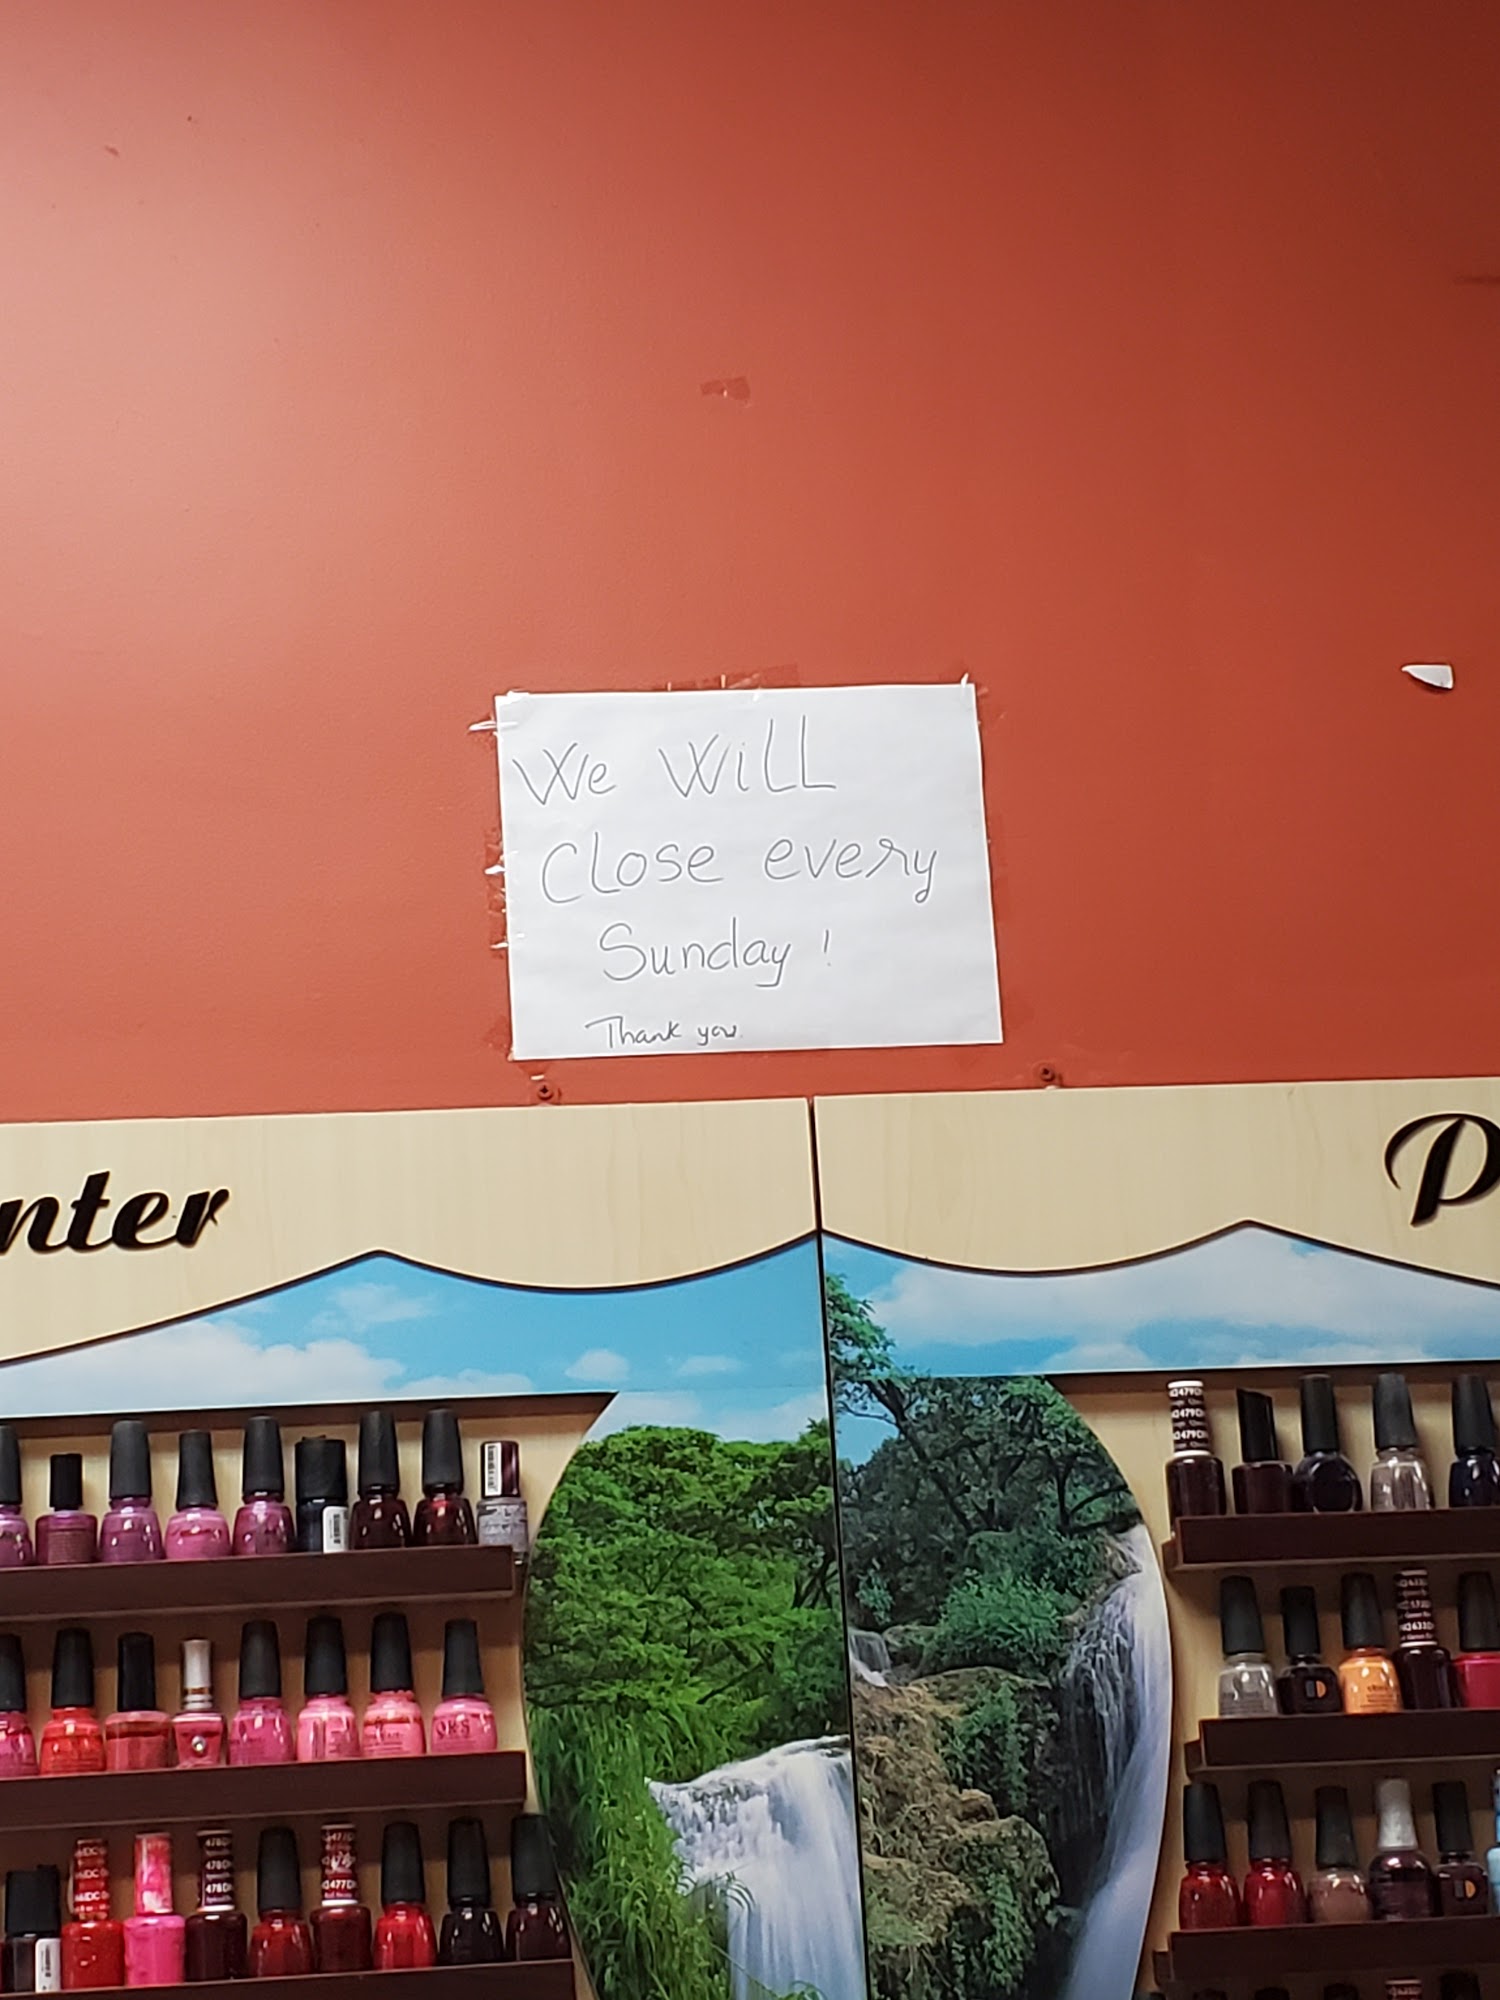 We WiLL
Close every
Sunday !
Thank you.
nter
P
OR&S